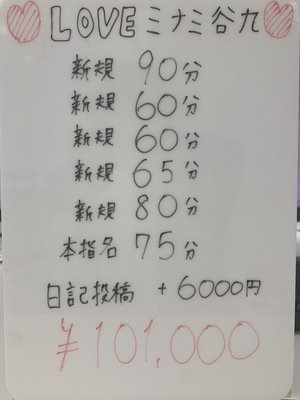 ♡ LOVEミナミ谷九 ♡
新規 90分
新規 60分
新規 60分
新規 65分
新規 80分
本指名 75分
日記投稿 +6000円
¥101,000